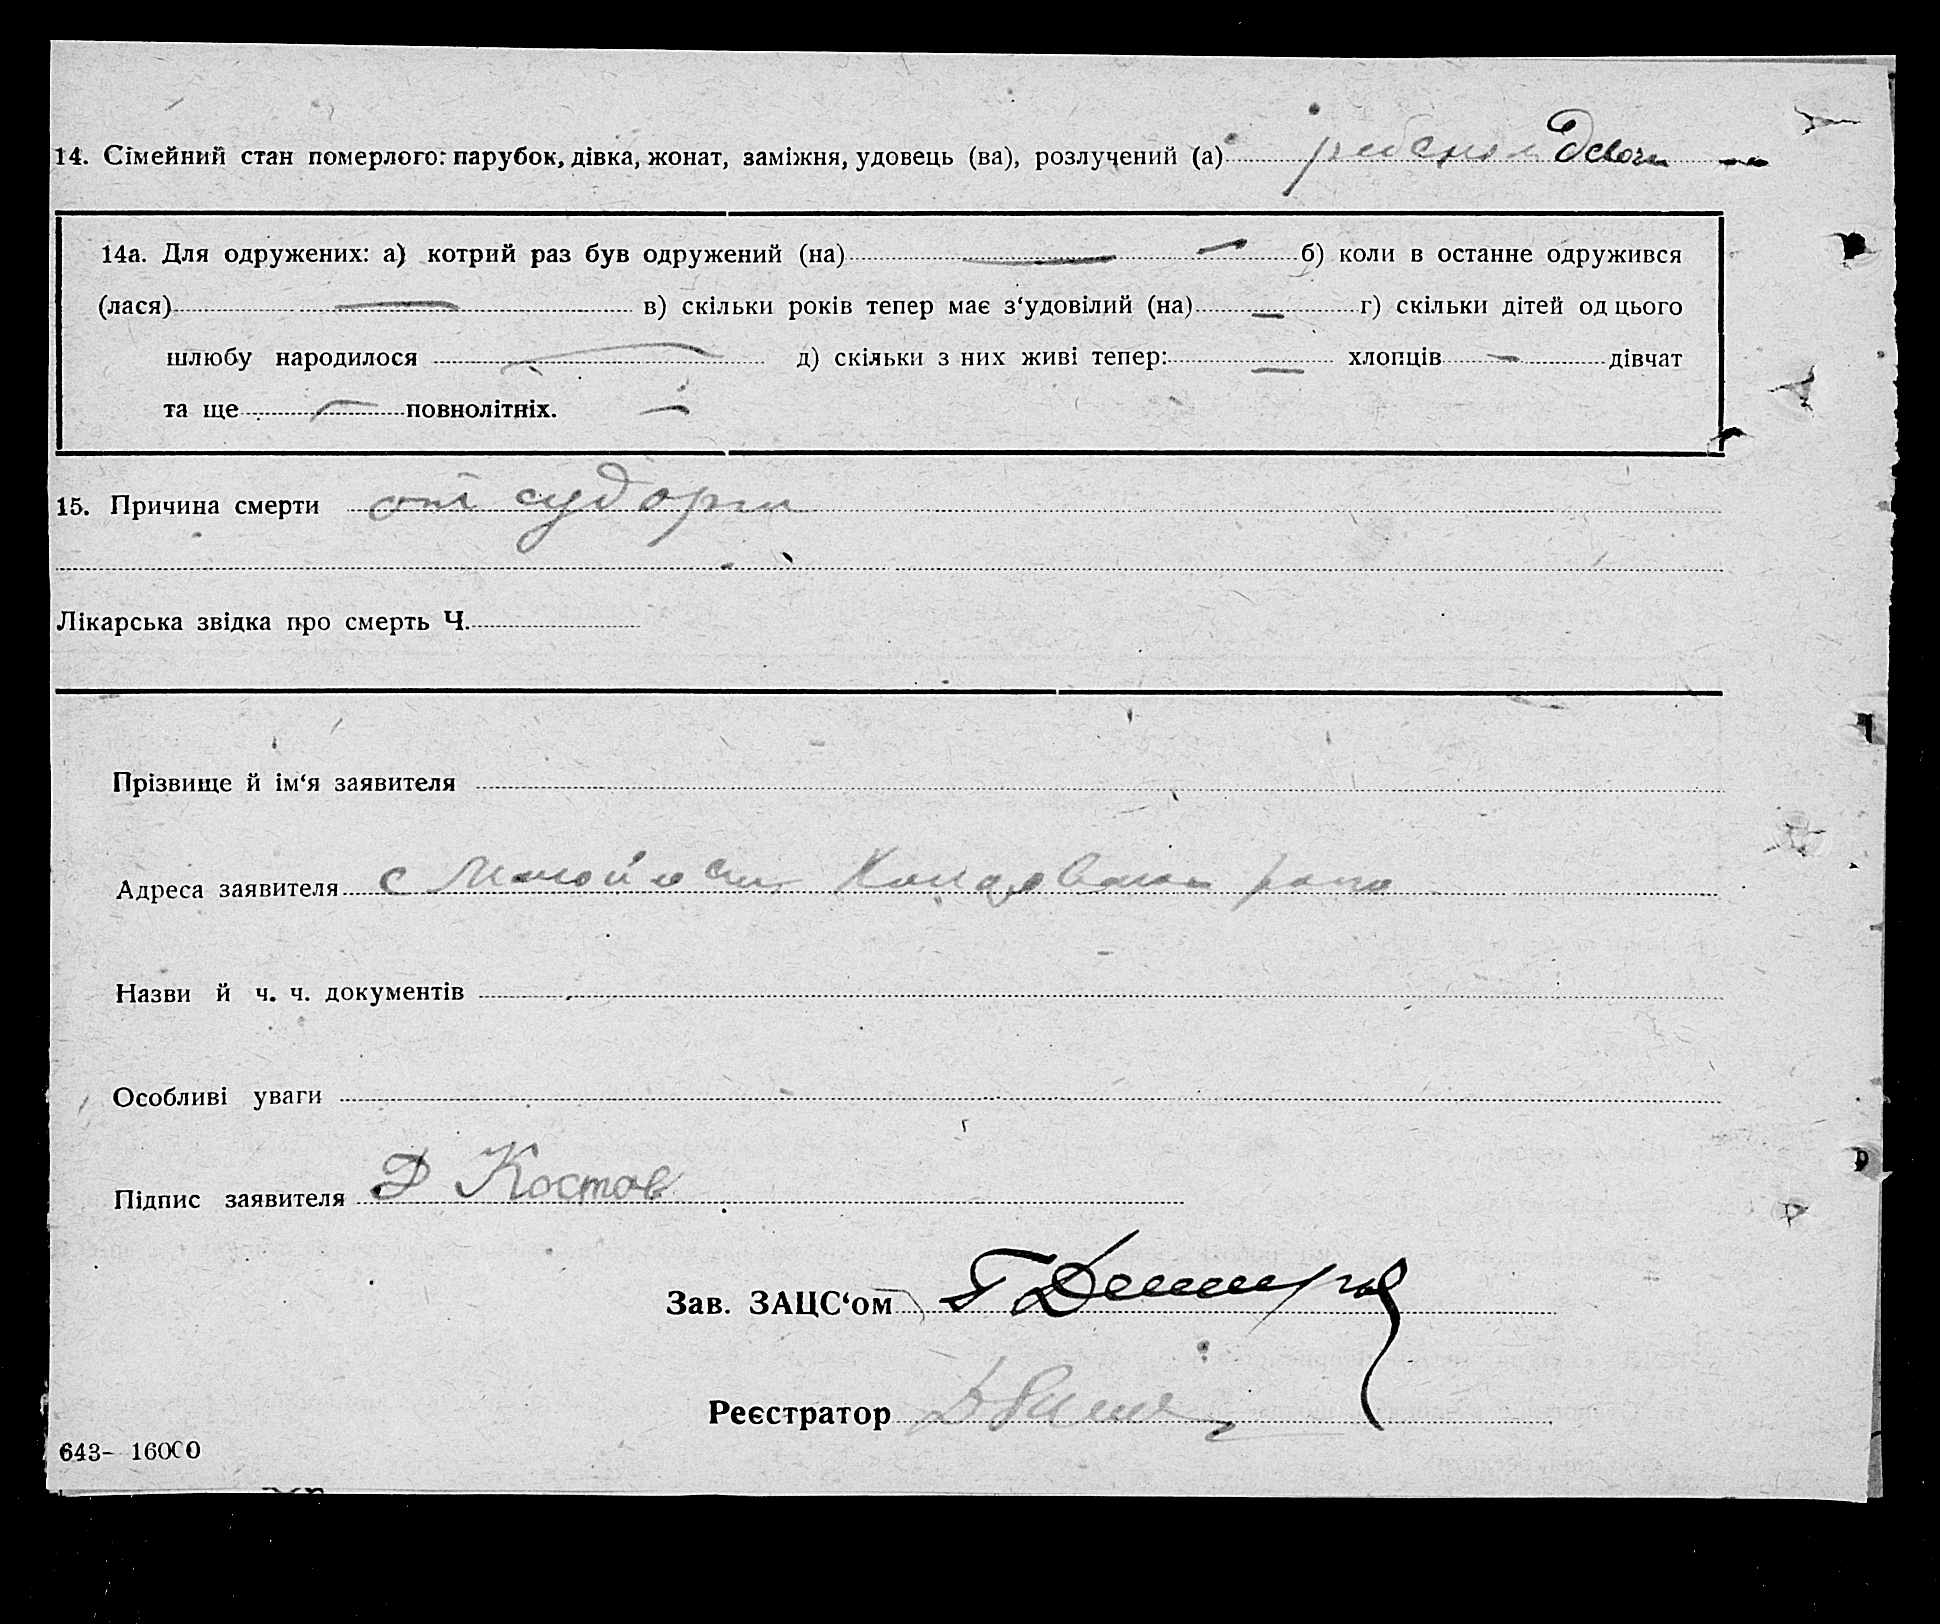 14. Сімейний стан померлого: парубок, дівка, жонат, заміжня, удовець (ва), розлучений (а)
14а. Для одружених: а) котрий раз був одружений (на) — б) коли в останне одружився
(лася) — в) скільки років тепер має з‘удовілий (на) — г) скільки дітей од цього
шлюбу народилося — д) скільки з них живі тепер: — хлопців — дівчат
та ще — повнолітніх. —
15. Причина смерти от судорги
Лікарська звідка про смерть Ч.
Прізвище й ім‘я заявителя
Адреса заявителя с
Назви й ч. ч. документів
Особливі уваги
Підпис заявителя Д Костов
Зав. ЗАЦС‘ом
Реєстратор
643– 16000